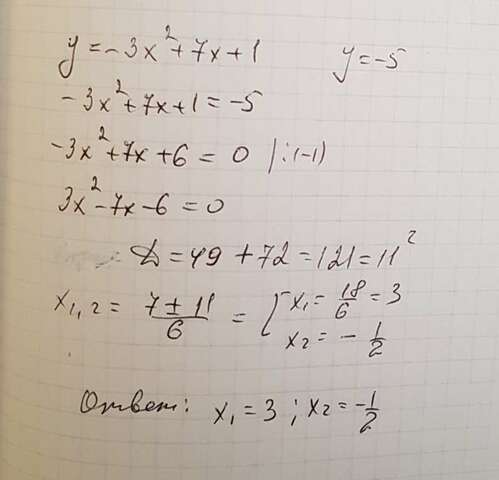 y = -3x² + 7x + 1 y = -5
-3x² + 7x + 1 = -5
-3x² + 7x + 6 = 0 | : (-1)
3x² - 7x - 6 = 0
D = 49 + 72 = 121 = 11²
x₁,₂ = (7 ± 11)/6 = [ x₁ = 18/6 = 3
x₂ = -1/2
Ответ: x₁ = 3 ; x₂ = -1/2